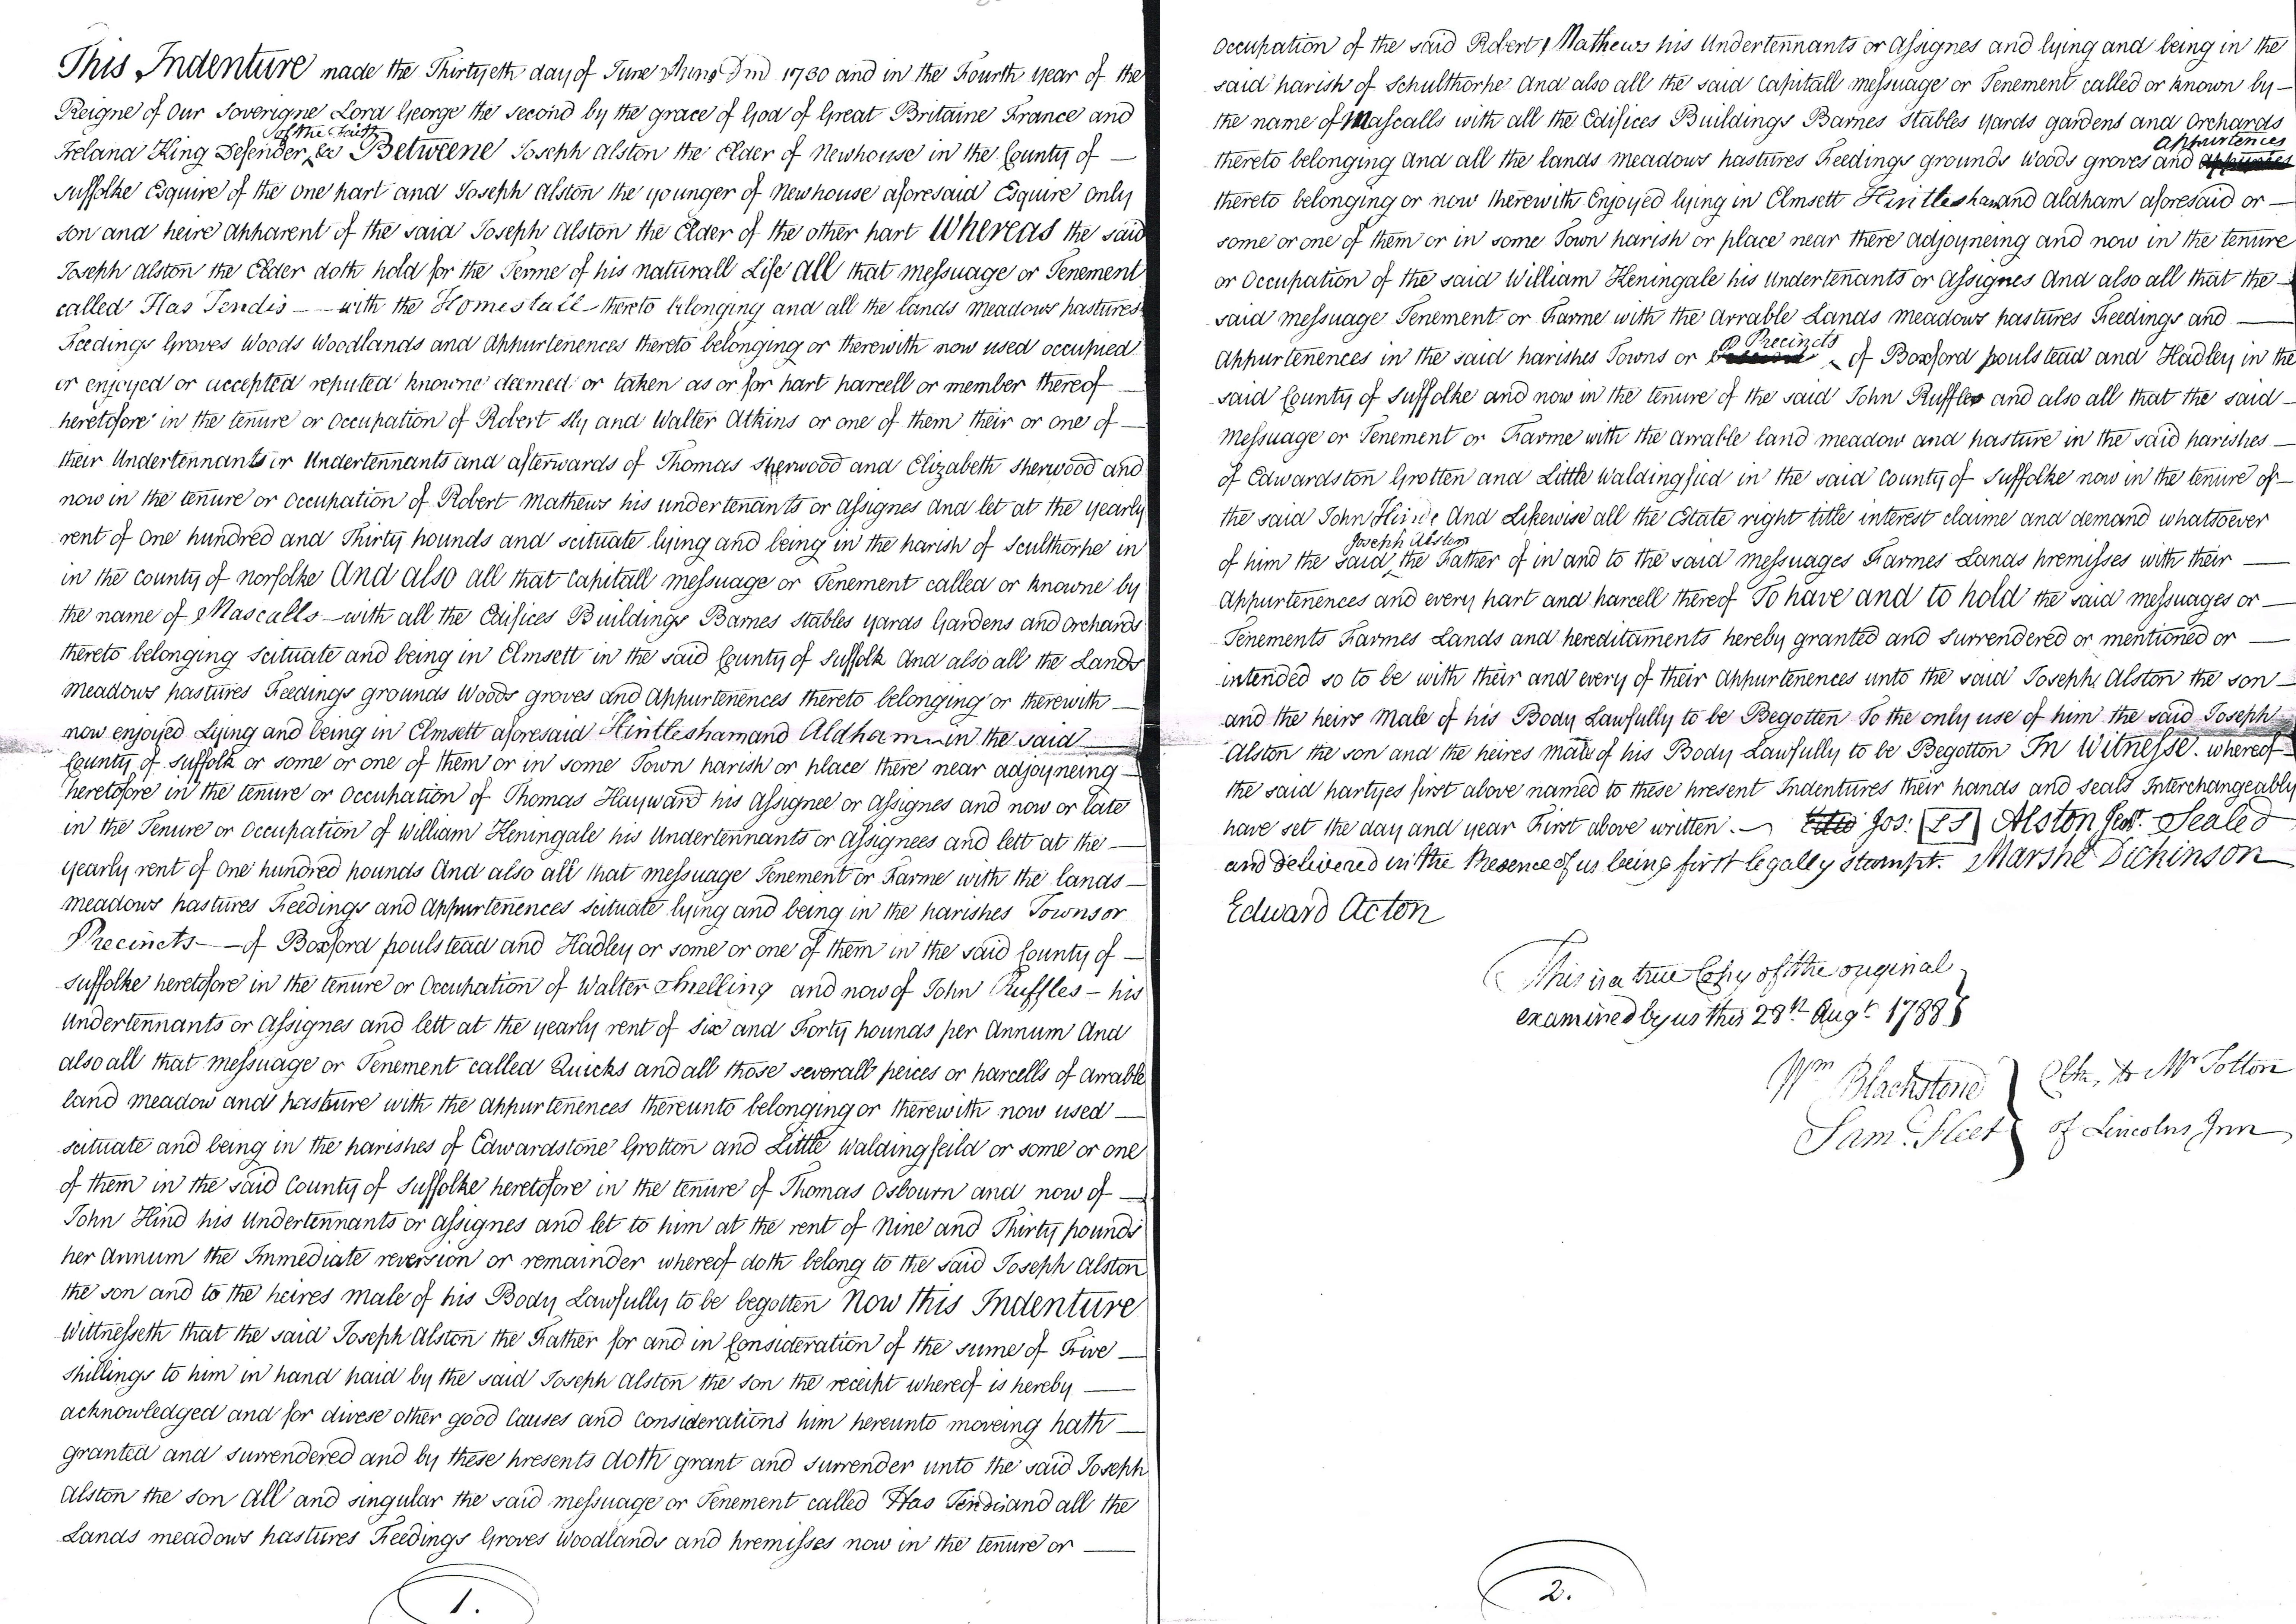 This Indenture made the Thirtyeth day of June Anno Dm 1730 and in the Fourth year of the
Reigne of Our Soverigne Lord George the second by the grace of God of Great Britaine France and
of the Faith
Ireland King Defender &c Betweene Joseph Alston the Elder of Newhouse in the County of
Suffolke Esquire of the one part and Joseph Alston the younger of Newhouse aforesaid Esquire only
son and heire apparent of the said Joseph Alston the Elder of the other part Whereas the said
Joseph Alston the Elder doth hold for the Terme of his naturall Life All that messuage or Tenement
called Has Tendis with the Homestall thereto belonging and all the lands meadows pastures
Feedings Groves Woods Woodlands and Appurtenences thereto belonging or therewith now used occupied
or enjoyed or accepted reputed knowne deemed or taken as or for part parcell or member thereof
heretofore in the tenure or Occupation of Robert Sly and Walter Atkins or one of them their or one of
their Undertennants or Undertennants and afterwards of Thomas Sherwood and Elizabeth Sherwood and
now in the tenure or occupation of Robert Mathews his undertenants or assignes and let at the yearly
rent of One hundred and Thirty pounds and scituate lying and being in the parish of Sculthorpe in
in the County of Norfolke And also all that Capitall messuage or Tenement called or knowne by
the name of Mascalls with all the Edifices Buildings Barnes Stables yards Gardens and Orchards
thereto belonging scituate and being in Elmsett in the said County of Suffolk And also all the Lands
Meadows pastures Feedings grounds Woods groves and Appurtenences thereto belonging or therewith
now enjoyed Lying and being in Elmsett aforesaid Hintlesham and Aldham in the said
County of Suffolk or some or one of them or in some Town parish or place there near adjoyneing
heretofore in the tenure or Occupation of Thomas Hayward his Assignee or Assignes and now or late
in the Tenure or Occupation of William Heningale his Undertennants or Assignees and lett at the
yearly rent of One hundred pounds And also all that messuage Tenement or Farme with the lands
meadows pastures Feedings and Appurtenences scituate lying and being in the parishes Towns or
Precincts of Boxford poulstead and Hadley or some or one of them in the said County of
Suffolke heretofore in the tenure or Occupation of Walter Snelling and now of John Ruffles his
Undertennants or Assignes and lett at the yearly rent of Six and Forty pounds per Annum And
also all that messuage or Tenement called Quicks and all those severall peices or parcells of arrable
land meadow and pasture with the appurtenences thereunto belonging or therewith now used
scituate and being in the parishes of Edwardstone Grotton and Little Waldingfeild or some or one
of them in the said County of Suffolke heretofore in the tenure of Thomas Osbourn and now of
John Hind his Undertennants or Assignes and let to him at the rent of Nine and Thirty pounds
per Annum the Immediate reversion or remainder whereof doth belong to the said Joseph Alston
the son and to the heires male of his Body Lawfully to be begotten Now this Indenture
Wittnesseth that the said Joseph Alston the Father for and in Consideration of the sume of Five
shillings to him in hand paid by the said Joseph Alston the son the receipt whereof is hereby
acknowledged and for divese other good Causes and Considerations him hereunto moveing hath
granted and surrendered and by these presents doth grant and surrender unto the said Joseph
Alston the son All and singular the said messuage or Tenement called Has Tendis and all the
Lands meadows pastures Feedings Groves Woodlands and premisses now in the tenure or
1.
Occupation of the said Robert Mathews his Undertennants or Assignes and lying and being in the
said parish of Schulthorpe And also all the said Capitall messuage or Tenement called or known by
the name of Mascalls with all the Edifices Buildings Barnes Stables yards gardens and Orchards
Appurtences
thereto belonging and all the lands meadows pastures Feedings grounds Woods groves and
thereto belonging or now therewith Enjoyed lying in Elmsett Hintlesham and Aldham aforesaid or
some or one of them or in some Town parish or place near there adjoyneing and now in the tenure
or Occupation of the said William Heningale his Undertenants or Assignes And also all that the
said messuage Tenement or Farme with the Arrable Lands meadows pastures Feedings and
Precincts
Appurtenences in the said parishes Towns or of Boxford poulstead and Hadley in the
said County of Suffolke and now in the tenure of the said John Ruffles and also all that the said
Messuage or Tenement or Farme with the arrable land meadow and pasture in the said parishes
of Edwardston Grotten and Little Waldingfied in the said County of Suffolke now in the tenure of
the said John Hinde And Likewise all the Estate right title interest claime and demand whatsoever
Joseph Alston
of him the said the Father of in and to the said messuages Farmes Lands premisses with their
Appurtenences and every part and parcell thereof To have and to hold the said messuages or
Tenements Farmes Lands and hereditaments hereby granted and surrendered or mentioned or
intended so to be with their and every of their Appurtenences unto the said Joseph Alston the son
and the heirs Male of his Body Lawfully to be Begotten To the only use of him the said Joseph
Alston the son and the heires Male of his Body Lawfully to be Begotton In Witnesse whereof
the said partyes first above named to these present Indentures their hands and seals Interchangeably
have set the day and year First above written. Jos: LS Alston Senr. Sealed
and delivered in the Presence of us being first legally stampt. Marshe Dickinson
Edward Acton
This is a true Copy of the original
examined by us this 28th Augt 1788
Wm Blackstone
Sam. Fleet
Clks to Mr Tolton
of Lincolns Inn
2.